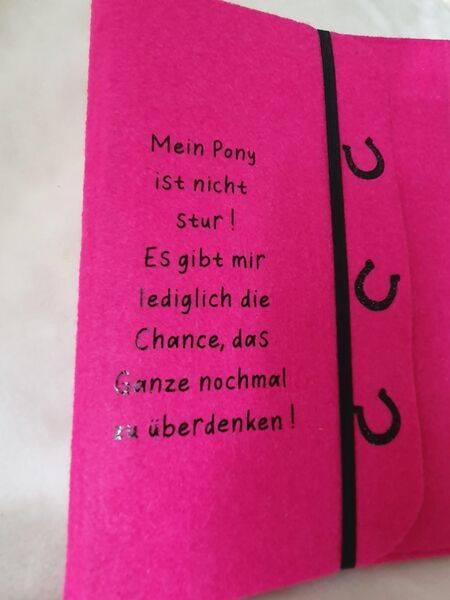 Mein Pony
ist nicht
stur!
Es gibt mir
lediglich die
Chance, das
Ganze nochmal
zu überdenken!